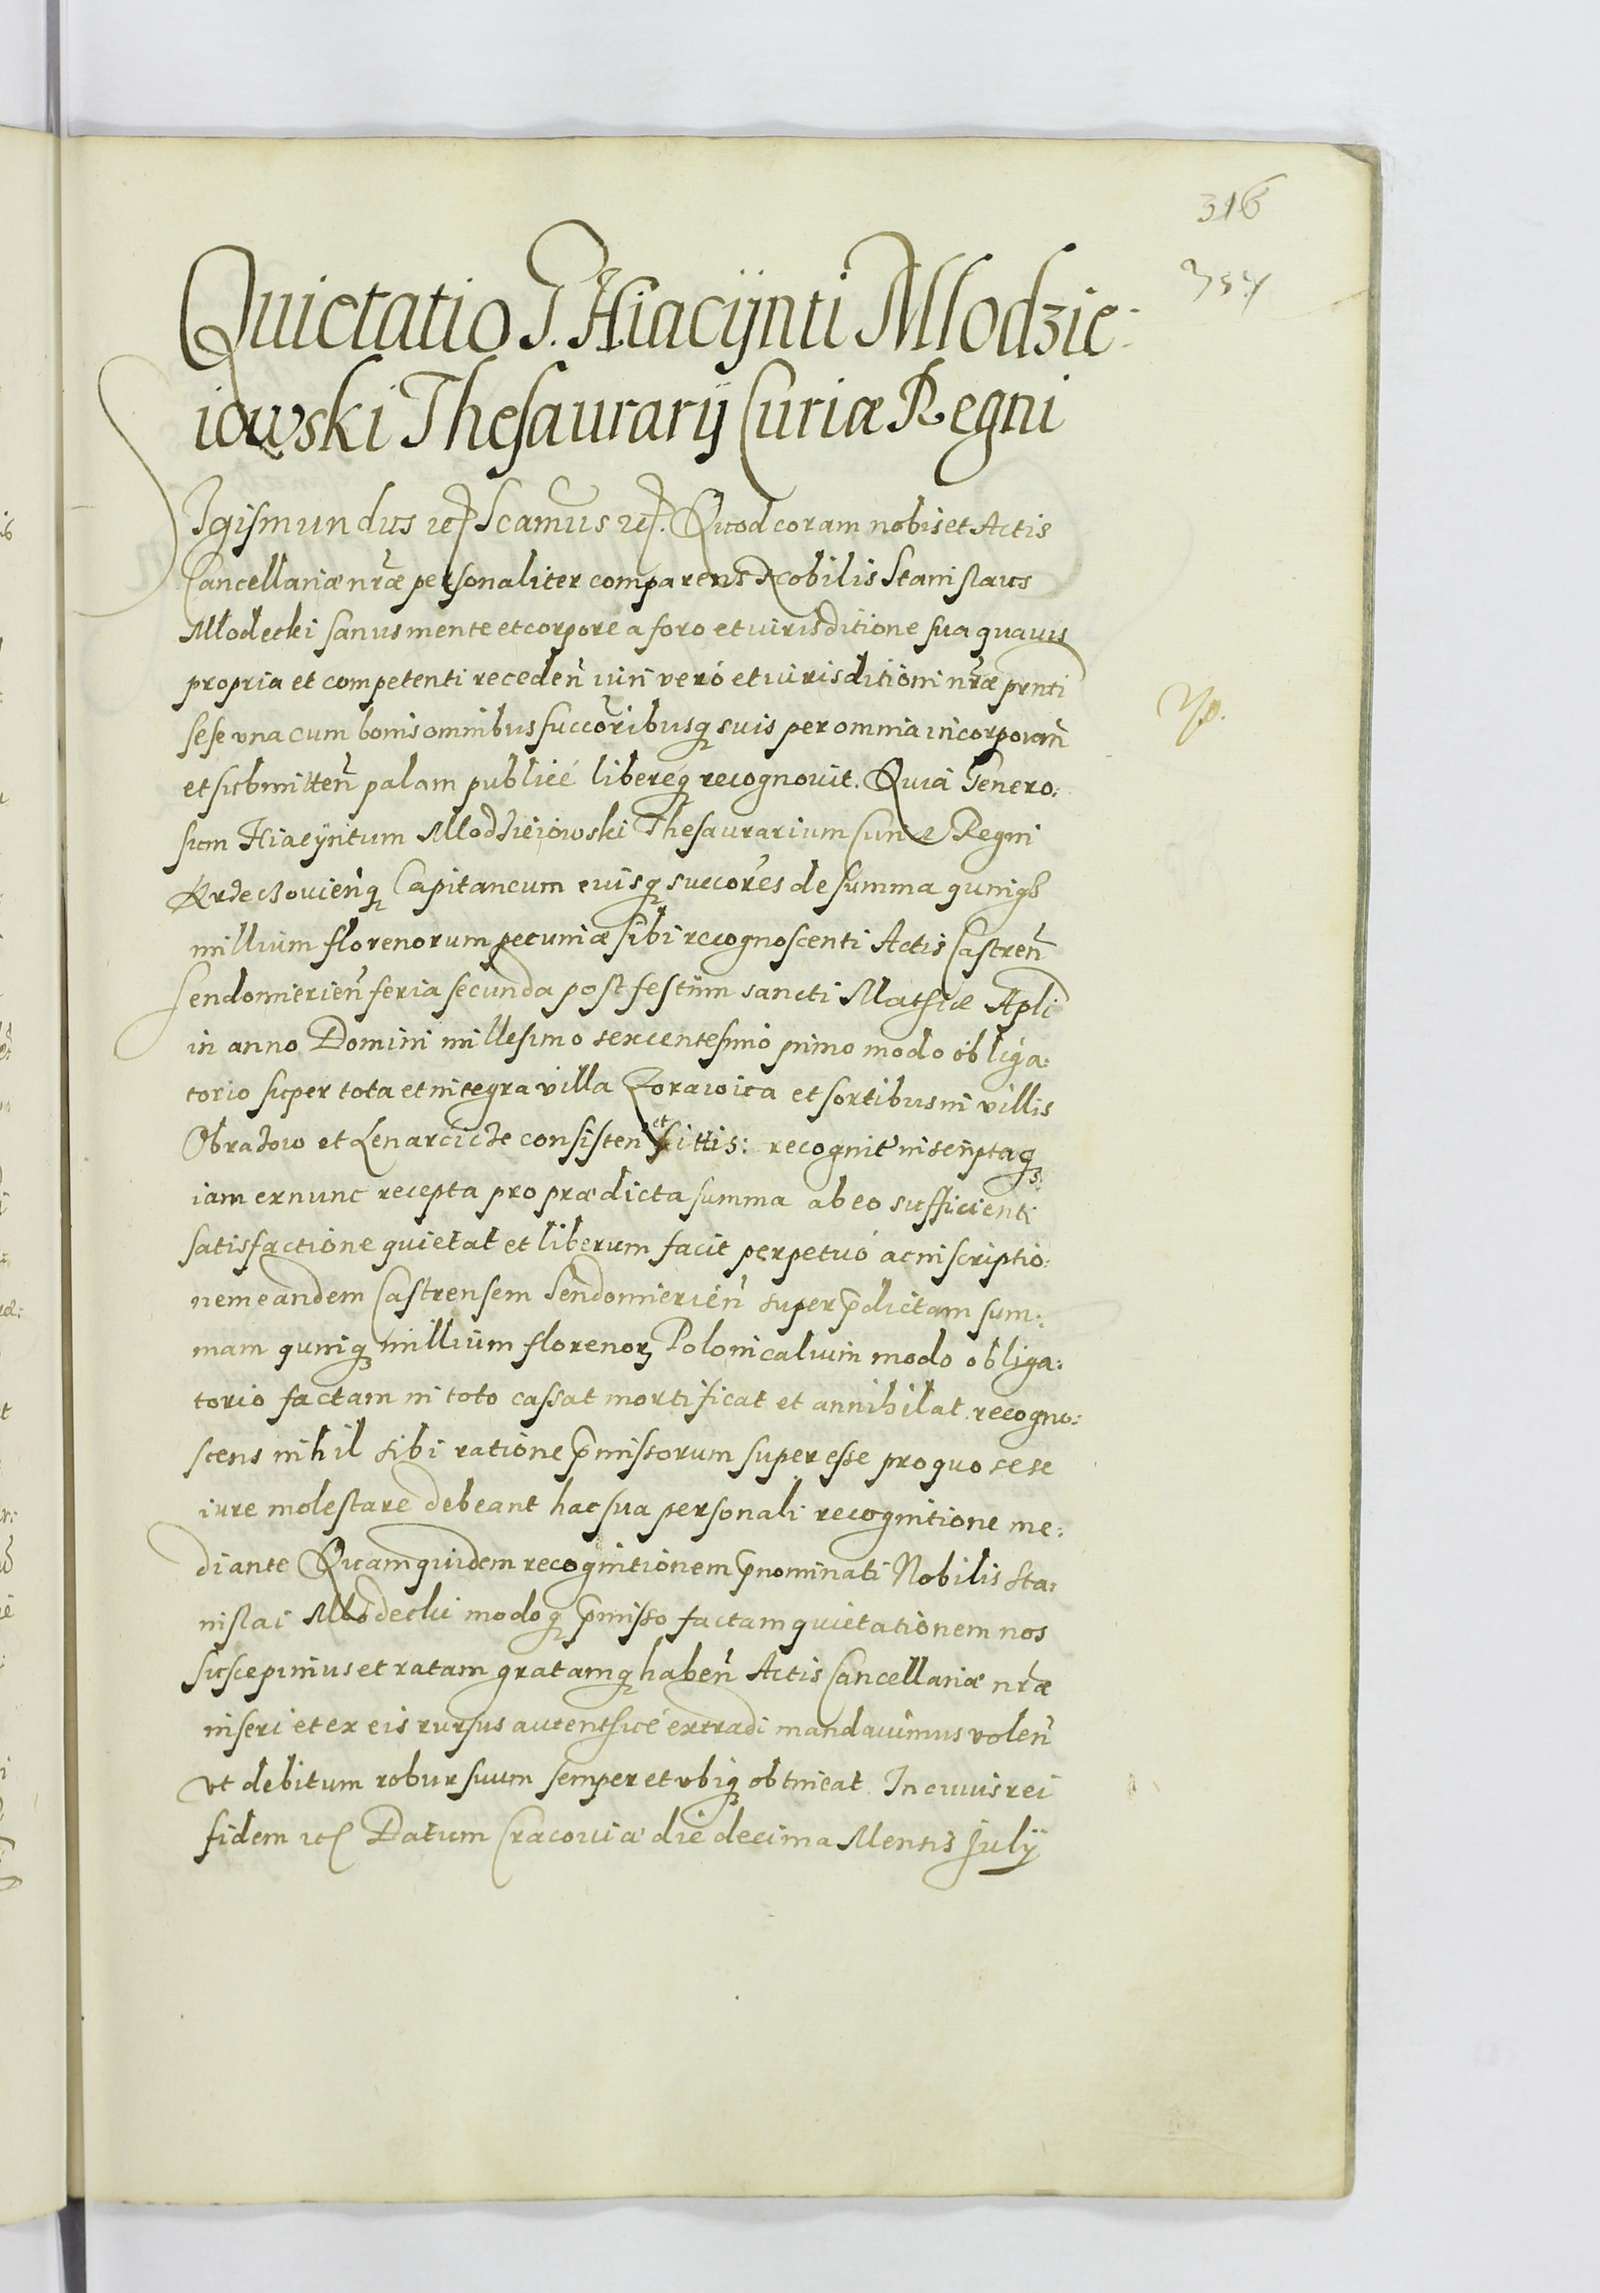 316
354
Quietatio G. Hiacÿnti Mlodzie-
iowski Thesaurarij Curiæ Regni
Sigismundus etc Scamus etc. Quod coram nobis et Actis
Cancellariæ nrae personaliter comparens Nobilis Stanislaus
Młodecki sanus mente et corpore a foro et iurisditione sua quavis
propria et competenti receden iuri veró et iurisditioni nrae prnti
sese vna cum bonis omnibus succoribusq suis per omnia incorporan
et submitten palam publicé libereq recognouit. Quia Genero:
sum Hiacÿntum Mlodzieiowski Thesaurarium Curiæ Regni
Capitaneum eiusq succores de summa quinqz
millium florenorum pecuniæ sibi recognoscenti Actis Castren
Sendomirien feria secunda post festum sancti Mathiæ Apli
in anno Domini millesimo sexcentesimo primo modo obliga:
torio super tota et integra villa Zorawica et sortibus in villis
Obrazow et Lenarcicze consisten et sittis: recognit inscriptaq
iam ex nunc recepta pro prædicta summa ab eo sufficienti
satisfactione quietat et liberum facit perpetuó ac inscriptio:
nem eandem Castrensem Sendomirien super pdictam sum:
mam quinq millium florenorz Polonicalium modo obliga:
torio factam in toto cassat mortificat et annihilat recogno:
scens nihil sibi ratione pmissorum superesse pro quo sese
iure molestare debeant hac sua personali recognitione me:
diante Quamquidem recognitionem pnominati Nobilis Sta:
nislai Mlodecki modoq pmisso factam quietationem nos
suscepimus et ratam gratamq haben Actis Cancellariæ nræ
inseri et ex eis rursus autenthicé extradi mandauimus volen
vt debitum robur suum semper et vbiq obtineat. In cuius rei
fidem etc Datum Cracouiæ die decima Mensis Julÿ